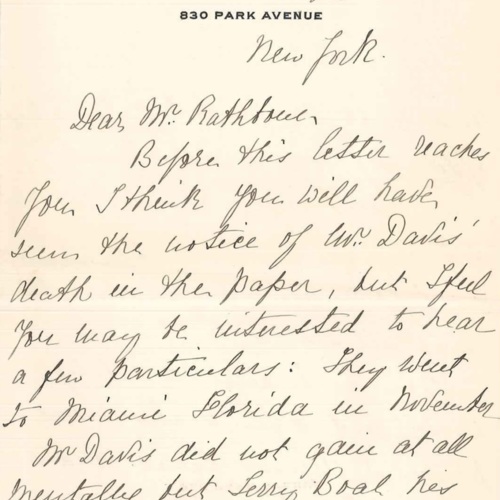 830 PARK AVENUE
New York.
Dear Mr. Rathbone
Before this letter reaches
you I think you will have
seen the notice of Mr. Davis'
death in the paper, but I feel
you may be interested to hear
a few particulars: They went
to Miami Florida in November
Mr Davis did not gain at all
mentally but Jerry Boal his